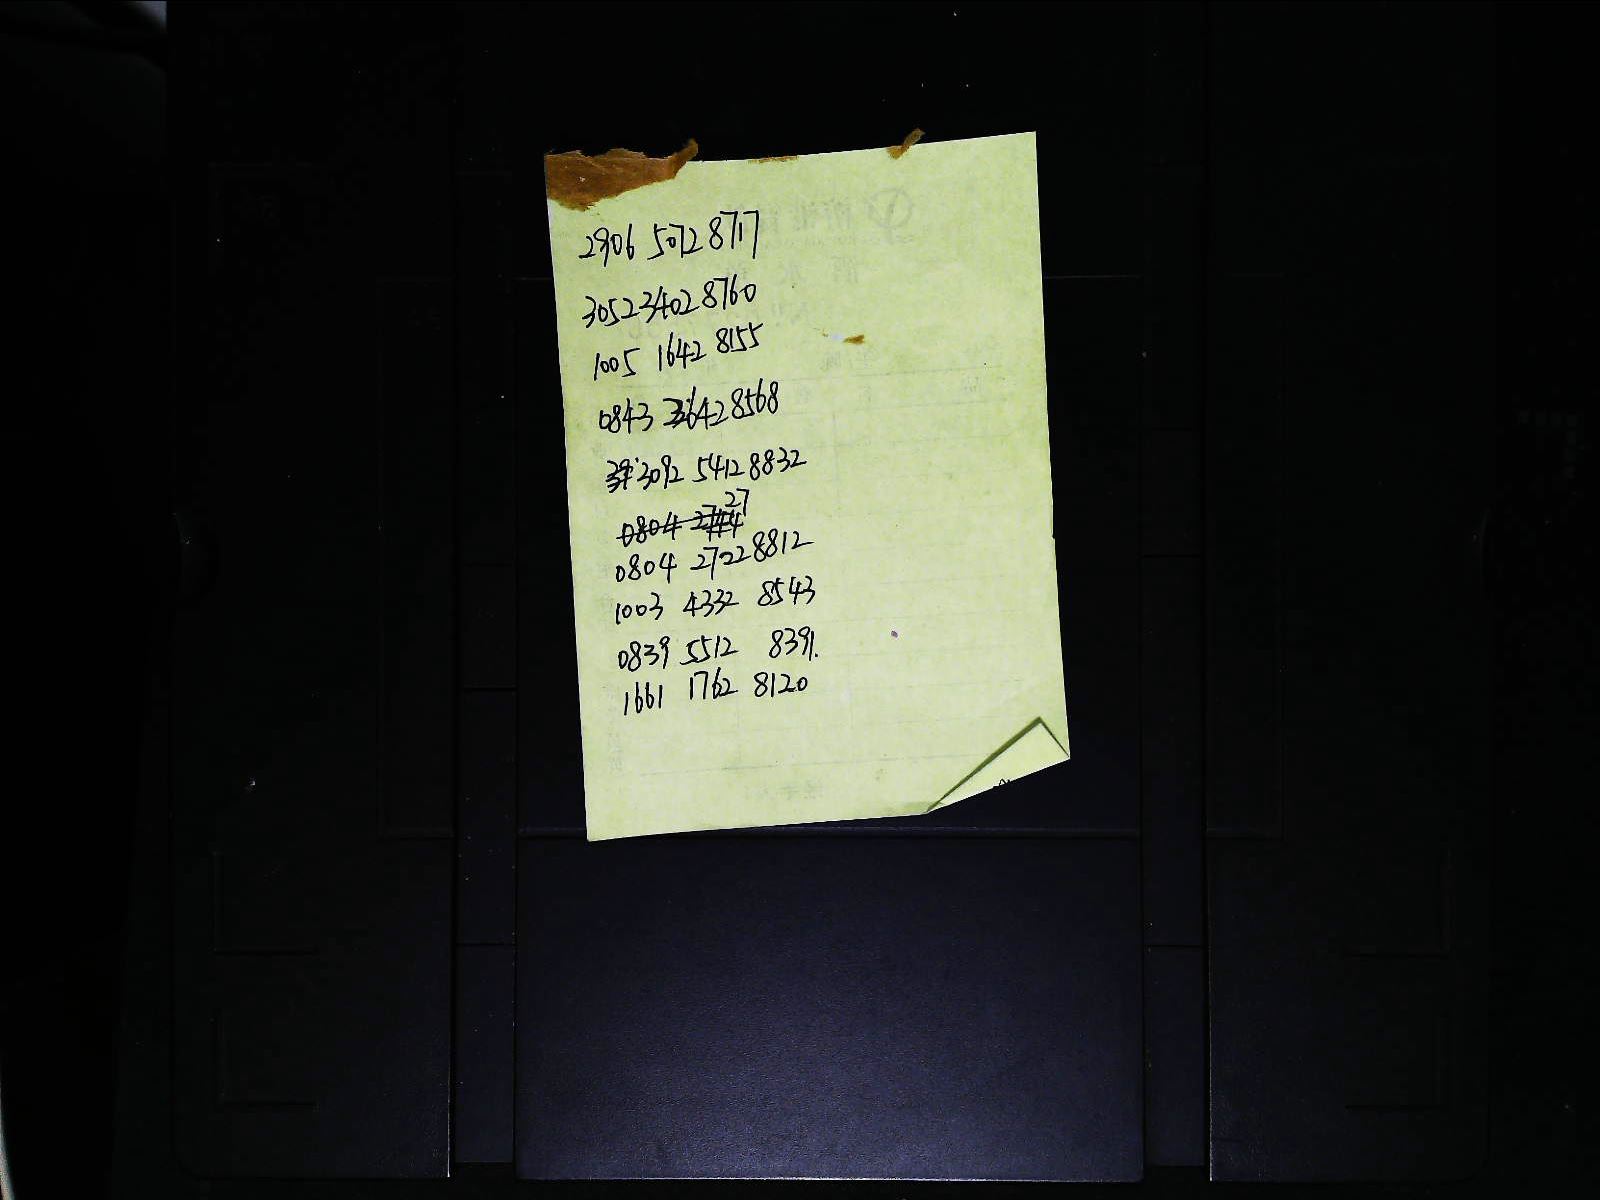 2906 5072 8717
3052 3402 8760
1005 1642 8155
0843 3642 8568
3092 5412 8832
0804 27
0804 2722 8812
1003 4332 8543
0839 5512 8391.
1661 1762 8120